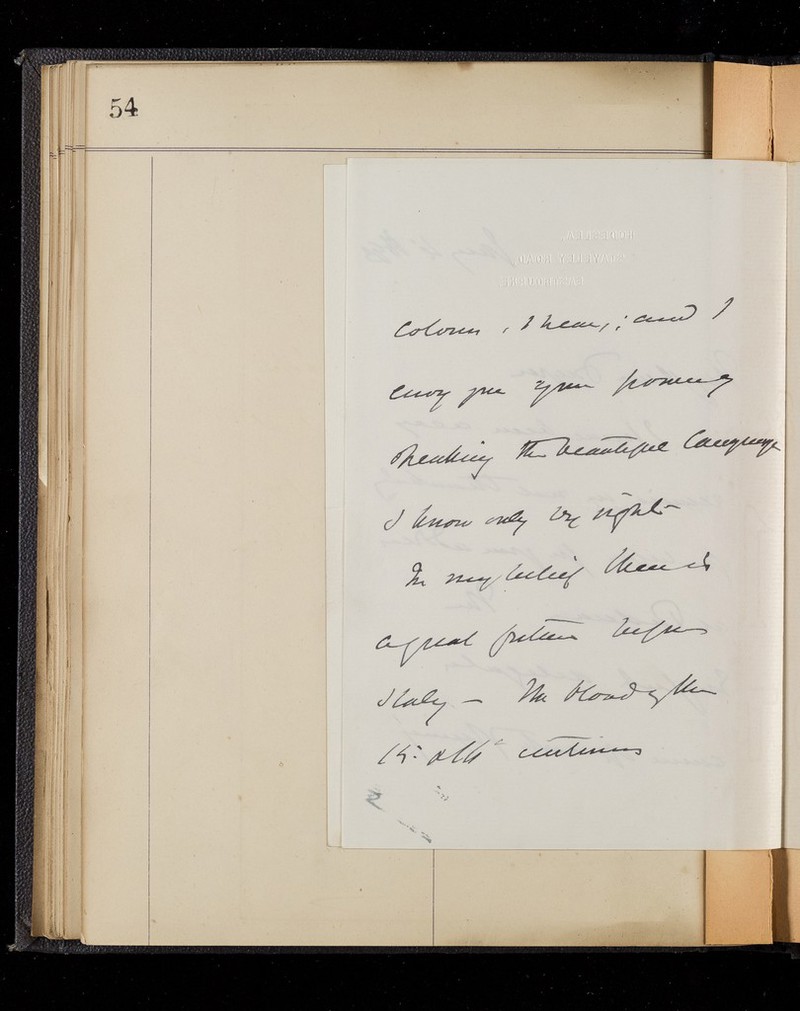 54
colours, I hear; and I
envy you your power of
speaking the beautiful language
I know only by sight
In my belief there is
a great future before
Italy — The blood of the
15 & 16 centuries